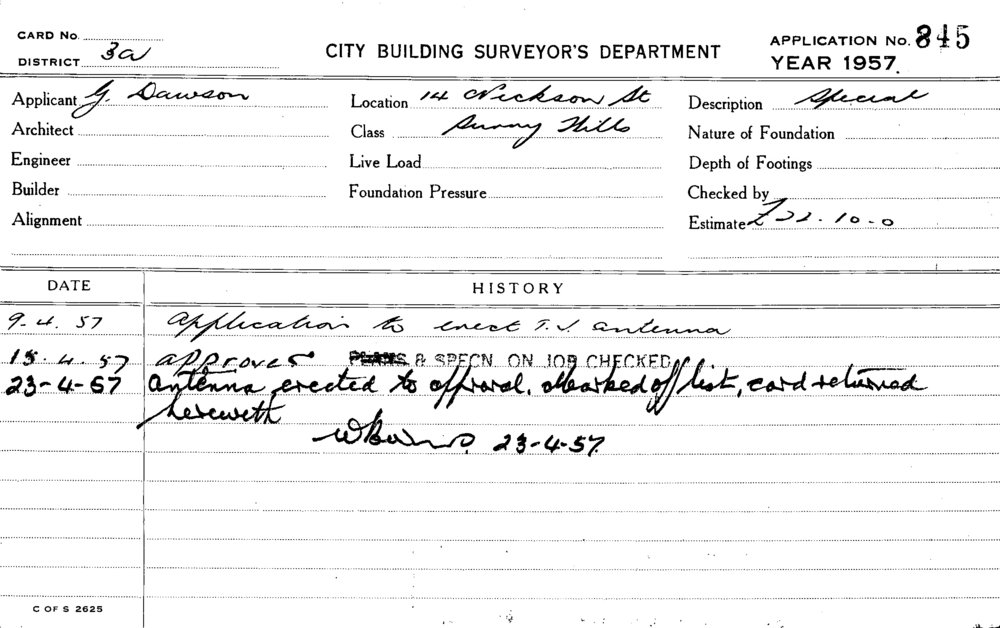 CARD No.
DISTRICT 3a
CITY BUILDING SURVEYOR'S DEPARTMENT
APPLICATION No. 845
YEAR 1957.
Applicant G. Dawson
Location 14 Nickson St
Description Special
Architect
Class Surry Hills
Nature of Foundation
Engineer
Live Load
Depth of Footings
Builder
Foundation Pressure
Checked by
Alignment
Estimate £22-10-0
DATE HISTORY
9.4.57 Application to erect T.V. antenna
15.4.57 approved PLANS & SPECN. ON JOB CHECKED
23-4-57 Antenna erected to approval. Marked off list, card returned
herewith
23-4-57.
C OF S 2625